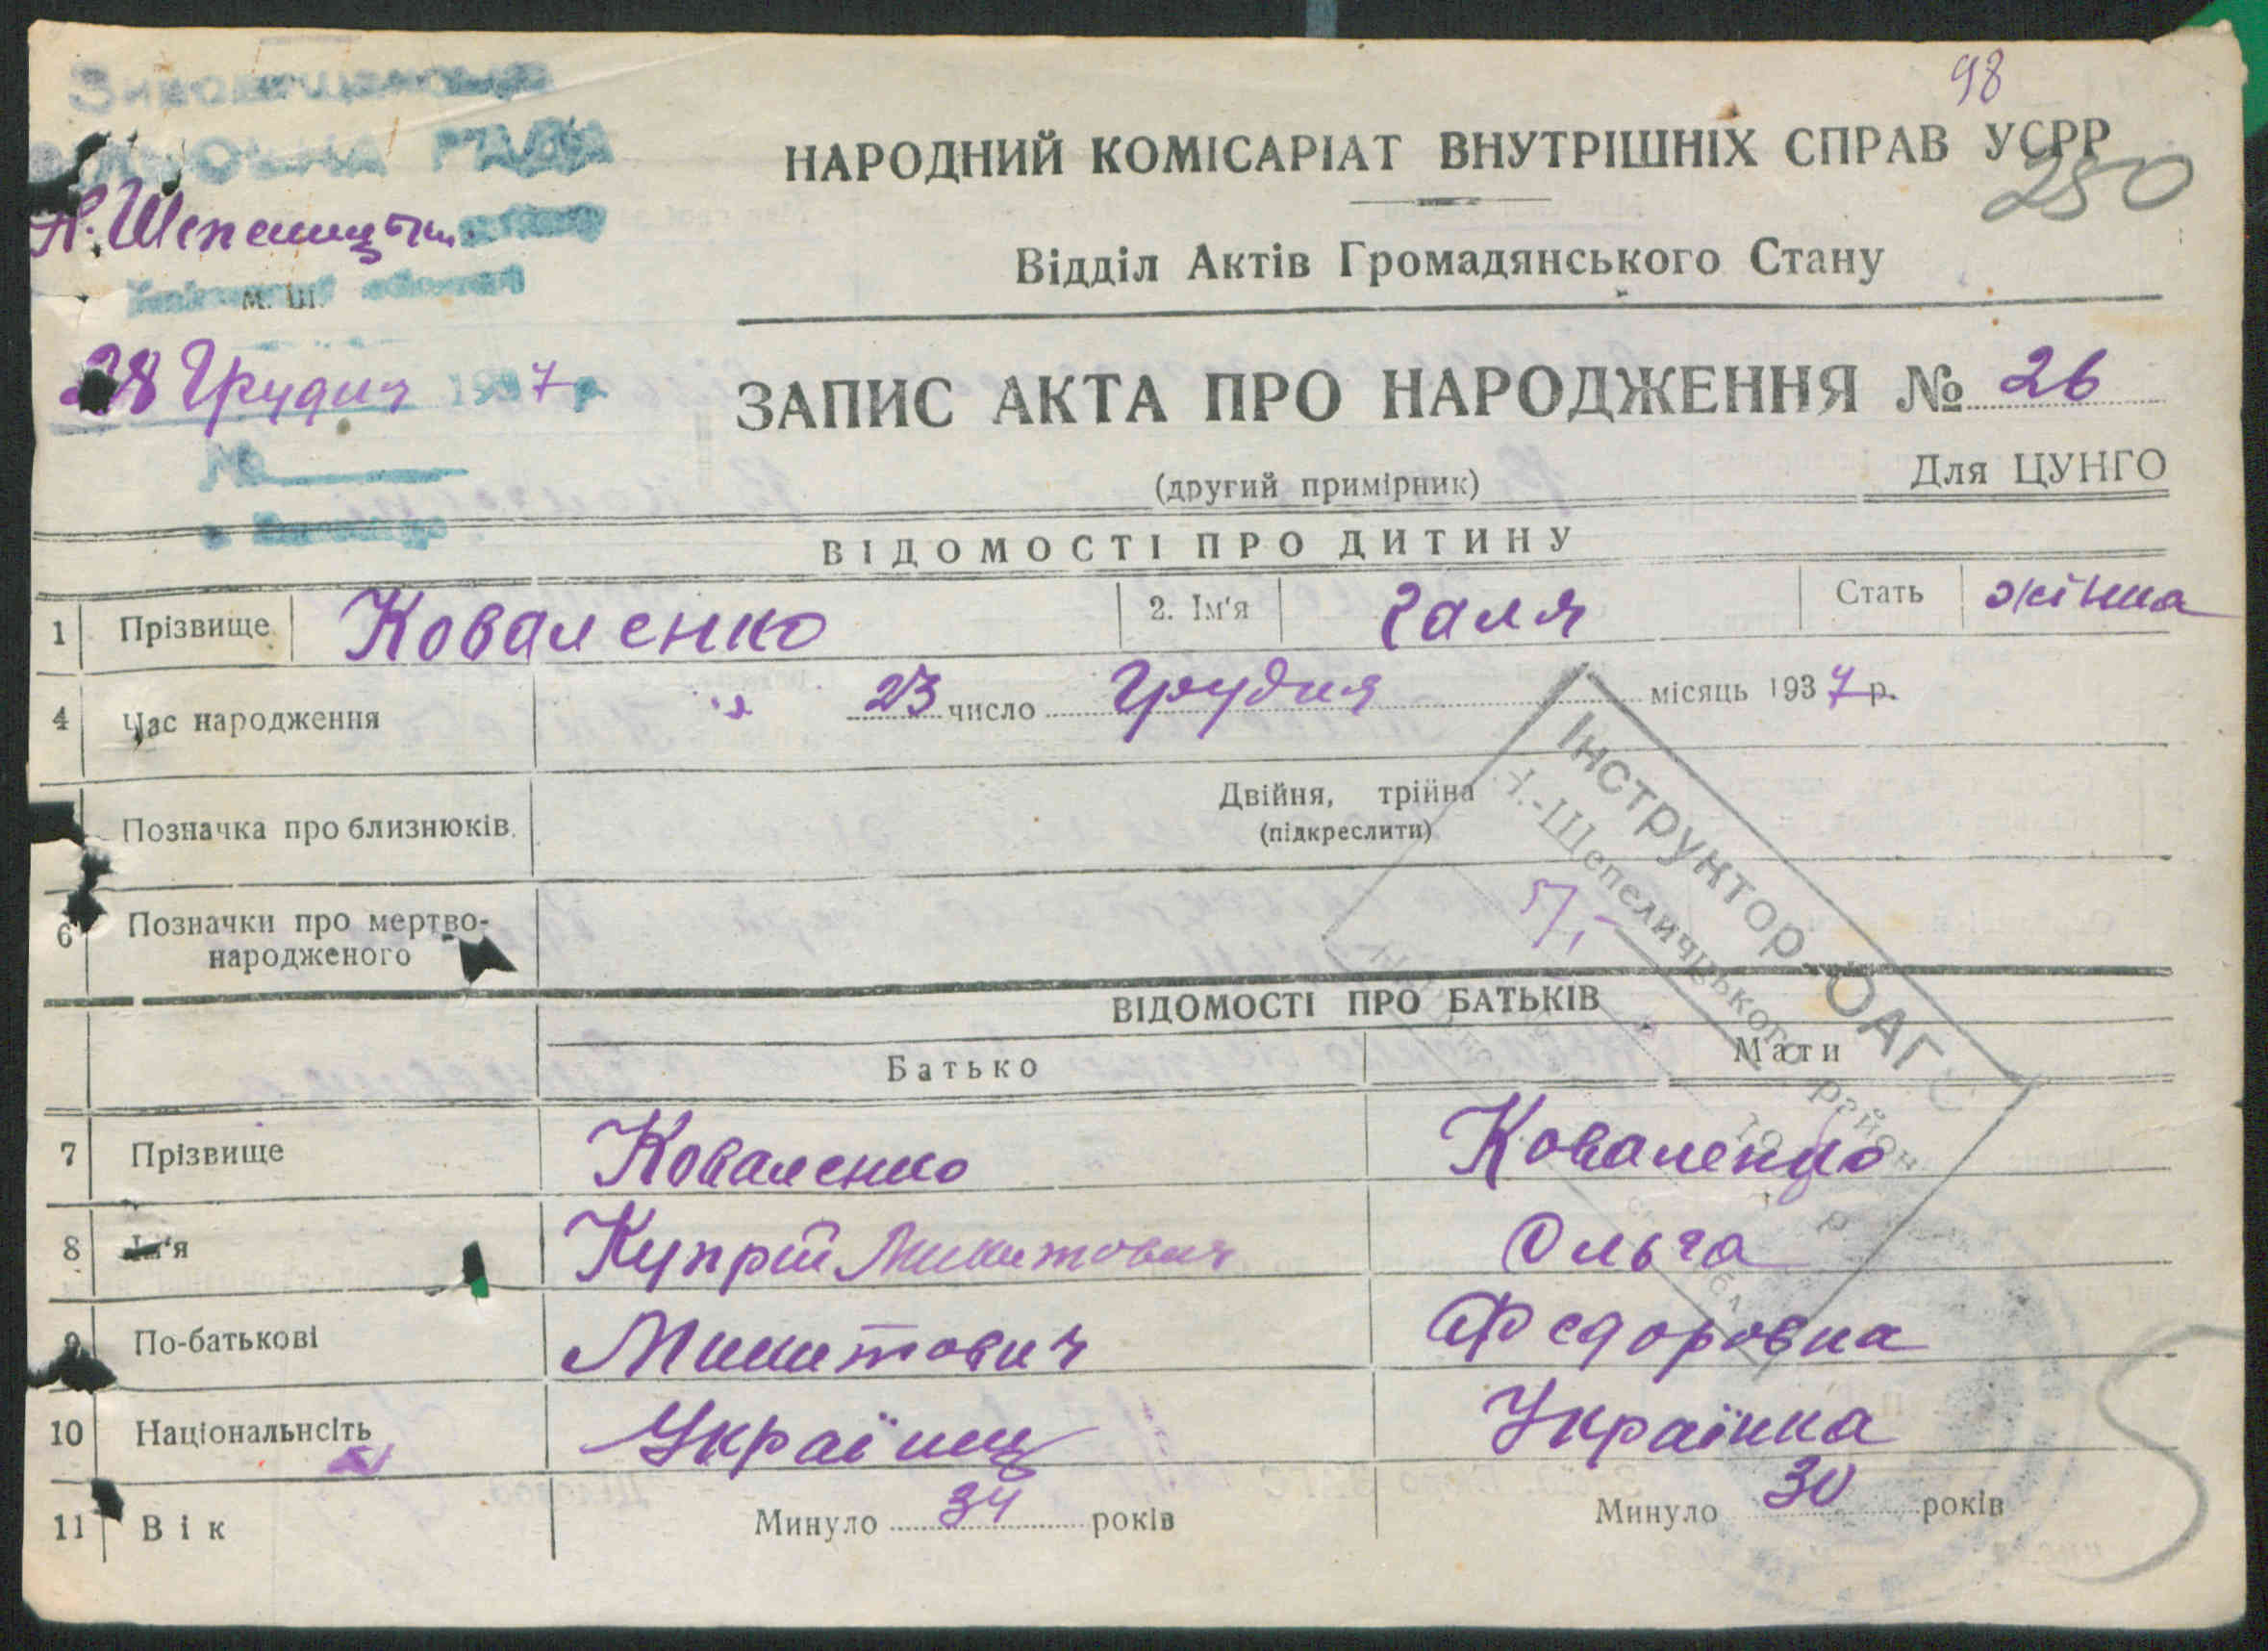 98
НАРОДНИЙ КОМІСАРІАТ ВНУТРІШНІХ СПРАВ УСРР
250
РАДА
Відділ Актів Громадянського Стану
М. Ш.
28 Грудня 1937 р
ЗАПИС АКТА ПРО НАРОДЖЕННЯ № 26
№
(другий примірник)
Для ЦУНГО
ВІДОМОСТІ ПРО ДИТИНУ
1 Прізвище Коваленко 2. Ім'я Галя Стать жінка
4 Час народження 23 число Грудня місяць 1937 р.
Позначка про близнюків. Двійня, трійна
(підкреслити)
Інструктор ОАГС
Н.-Шепеличського район
6 Позначки про мертво-
народженого
ВІДОМОСТІ ПРО БАТЬКІВ
Батько Мати
7 Прізвище Коваленко Коваленко
8 Ім'я Купрій Микитович Ольга
9 По-батькові Микитович Федоровна
10 Національнсіть Українец Українка
11 Вік Минуло 34 років Минуло 30 років